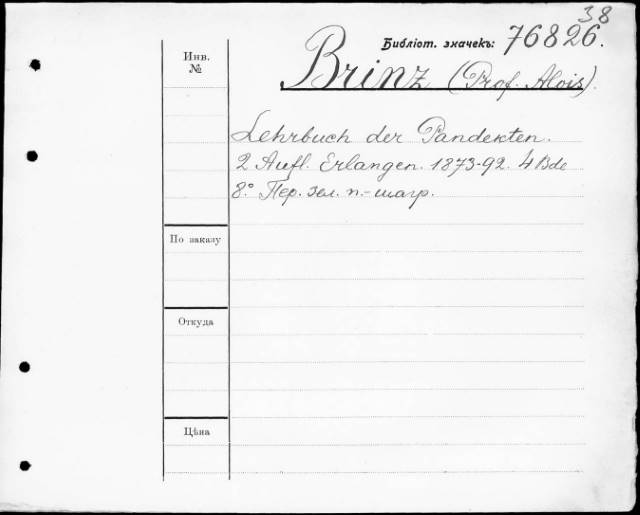 38
Библіот. значекъ: 76826.
Инв. №
Brinz (Prof. Alois).
Lehrbuch der Pandekten.
2 Aufl. Erlangen. 1873-92. 4 Bde
8º Пер. зел. п.-шагр.
По заказу
Откуда
Цѣна